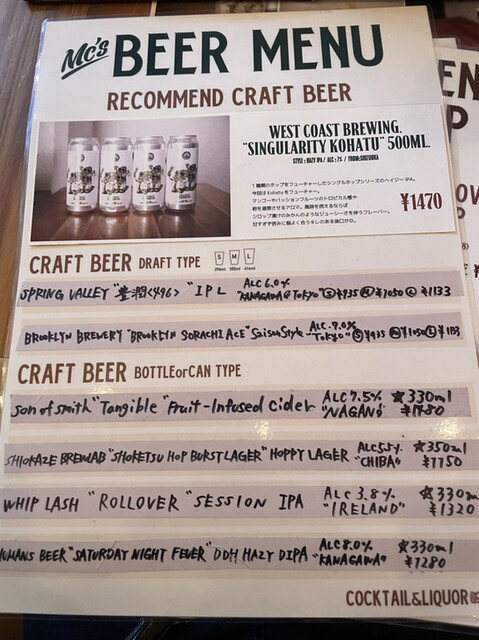 Mc's BEER MENU
RECOMMEND CRAFT BEER
WEST COAST BREWING.
"SINGULARITY KOHATU" 500ML.
STYLE : HAZY IPA / ALC : 7% / FROM:SHIZUOKA
1種類のホップをフューチャーしたシングルホップシリーズのヘイジーIPA。
今回は Kohatu をフューチャー。
マンゴーやパッションフルーツのトロピカル感や
シロップ漬けのみかんのようなジューシーさを持つフレーバー。
甘すぎず苦みに程よく合うキレのある後口に。
¥1470
CRAFT BEER DRAFT TYPE S M L
SPRING VALLEY "豊潤<496>" IPL ALC 6.0% "KANAGAWA&TOKYO" Ⓢ¥935 Ⓜ¥1050 Ⓛ¥1133
BROOKLYN BREWERY "BROOKLYN SORACHI ACE" Saison Style ALC.7.0% "TOKYO" Ⓢ¥935 Ⓜ¥1050 Ⓛ¥1133
CRAFT BEER BOTTLEorCAN TYPE
son of smith "Tangible" Fruit-Infused Cider ALC 7.5% "NAGANO" ☆330ml
SHIOKAZE BREWLAB "SHOKETSU HOP BURST LAGER" HOPPY LAGER ALC5.5% "CHIBA" ☆350ml
WHIP LASH "ROLLOVER" SESSION IPA ALC 3.8% "IRELAND" ☆330ml ¥1320
HUMANS BEER "SATURDAY NIGHT FEVER" DDH HAZY DIPA ALC8.0% "KANAGAWA" ☆330ml ¥1280
COCKTAIL&LIQUOR